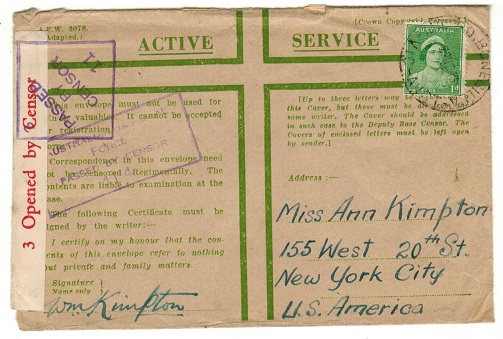 A.F.W. 3078.
(Adapted.)
(Crown Copy
ACTIVE SERVICE
AUSTRALIA
1d
PASSED
BY
CENSOR
11
3 Opened by Censor
this envelope must not be used for
valuable. It cannot be accepted
registration.
Correspondence in this envelope need
not be censored Regimentally. The
contents are liable to examination at the
Base.
The following Certificate must be
signed by the writer:—
I certify on my honour that the con-
tents of this envelope refer to nothing
but private and family matters.
Signature
Name only
Wm Kimpton
AUSTRALIAN
FORCE
PASSED BY CENSOR
[Up to three letters may be
this Cover, but these must be
same writer. The Cover should be addressed
in such case to the Deputy Base Censor. The
Covers of enclosed letters must be left open
by sender.]
Address :—
Miss Ann Kimpton
155 West 20th St.
New York City
U.S. America